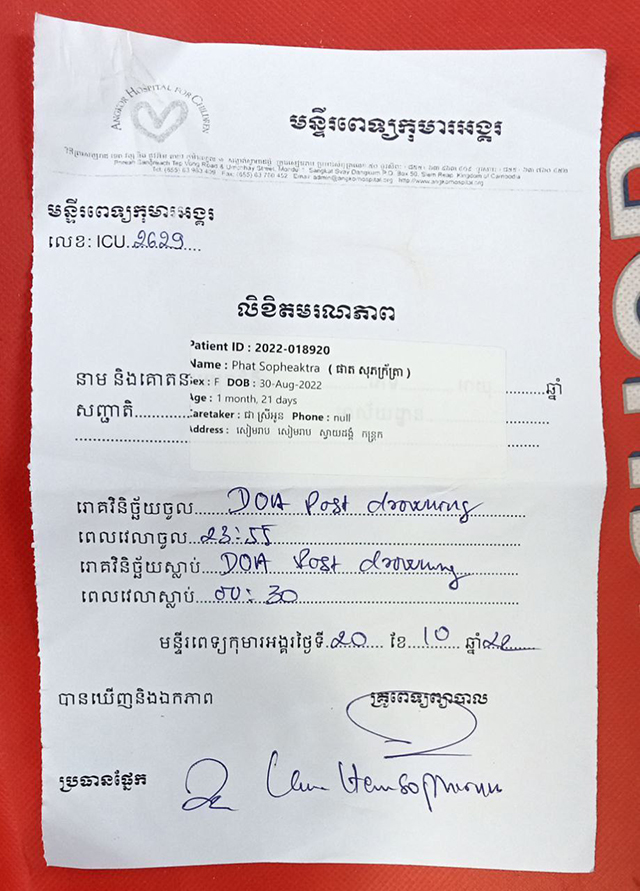 ANGKOR HOSPITAL FOR CHILDREN
មន្ទីរពេទ្យកុមារអង្គរ
Tel: (855) 63 963 409 Fax: (855) 63 760 452 Email: admin@angkorhospital.org http://www.angkorhospital.org
មន្ទីរពេទ្យកុមារអង្គរ
លេខ: ICU 2629
លិខិតមរណភាព
Patient ID : 2022-018920
Name : Phat Sopheaktra ( ផាត សុភក្រ័ត្រា )
នាម និងគោត្តនា
Sex : F DOB : 30-Aug-2022
ឆ្នាំ
Age : 1 month, 21 days
សញ្ជាតិ
Caretaker : ជា ស្រីអូន Phone : null
Address : សៀមរាប សៀមរាប ស្វាយដង្គំ កន្ត្រក
រោគវិនិច្ឆ័យចូល DOA Post drowning
ពេលវេលាចូល ២៣:៥៥
រោគវិនិច្ឆ័យស្លាប់ DOA Post drowning
ពេលវេលាស្លាប់ ០០:30
មន្ទីរពេទ្យកុមារអង្គរថ្ងៃទី ២០ ខែ 10 ឆ្នាំ ២២
បានឃើញនិងឯកភាព
គ្រូពេទ្យព្យាបាល
ប្រធានផ្នែក